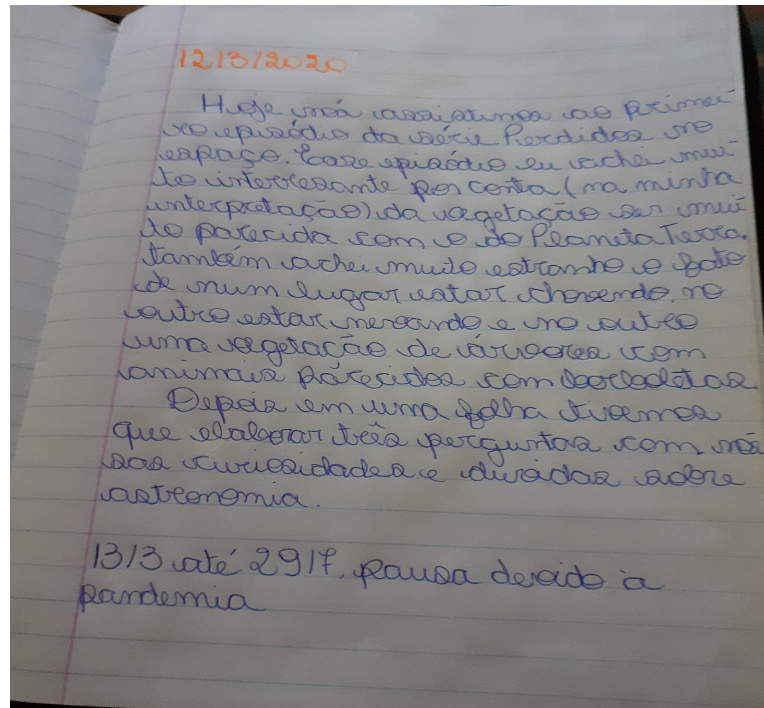 12/3/2020
Hoje nós assistimos ao primei-
ro episódio da série Perdidos no
espaço. Esse episódio eu achei mui-
to interessante por conta (na minha
interpretação) da vegetação ser mui-
to parecida com o do Planeta Terra.
também achei muito estranho o fato
de num lugar estar chovendo, no
outro estar nevando e no outro
uma vegetação de árvores com
animais parecidos com borboletas.
Depois em uma folha tivemos
que elaborar três perguntas com nos
sas curiosidades e dúvidas sobre
astronomia.
13/3 até 29/7, pausa devido à
pandemia